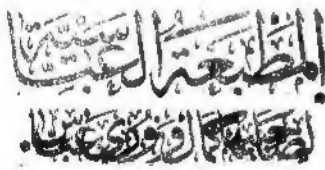 المطبعة العباسية
لصاحبها كمال وفوزي عباس